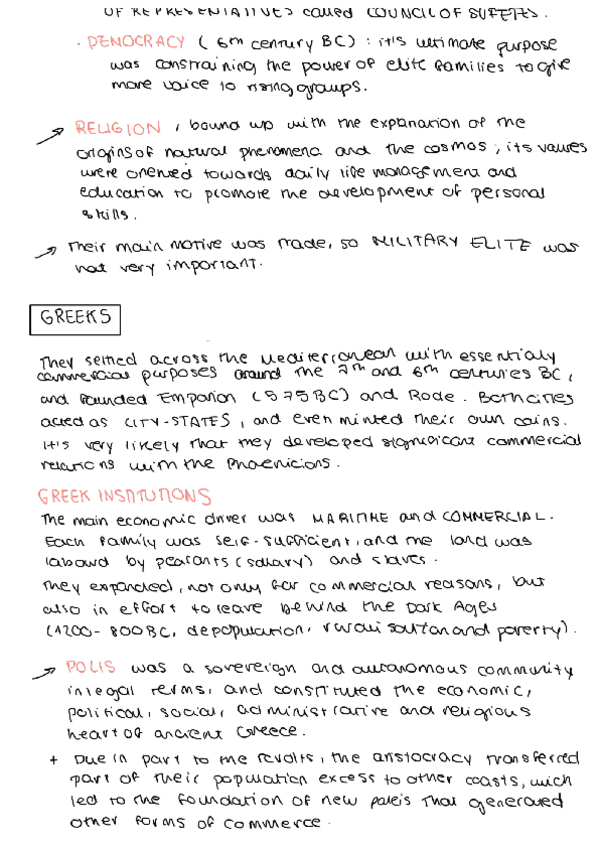 OF REPRESENTATIVES called COUNCIL OF SUFETES.
· DEMOCRACY (6th century BC): it's ultimate purpose
was constraining the power of elite families to give
more voice to rising groups.
RELIGION, bound up with the expanation of the
origins of natural phenomena and the cosmos; its values
were oriented towards daily life management and
education to promote the development of personal
skills.
Their main motive was trade, so MILITARY ELITE was
not very important.
GREEKS
They settled across the Mediterranean with essentialy
commercial purposes around the 7th and 6th centuries BC,
and founded Emporion (575BC) and Rode. Both cities
acted as CITY-STATES, and even minted their own coins.
It's very likely that they developed significant commercial
relations with the Phoenicians.
GREEK INSTITUTIONS
The main economic driver was MARITIME and COMMERCIAL.
Each family was self-sufficient, and the land was
labourd by peasants (salary) and slaves.
They expanded, not only for commercial reasons, but
also in effort to leave behind the Dark Ages
(1200-800BC, depopulation, and poverty).
POLIS was a sovereign and autonomous community
in legal terms, and constituted the economic,
political, social, administrative and religious
heart of ancient Greece.
+ Due in part to the revolts, the aristocracy transferred
part of their population excess to other coasts, wich
led to the foundation of new poleis that generated
other forms of commerce.